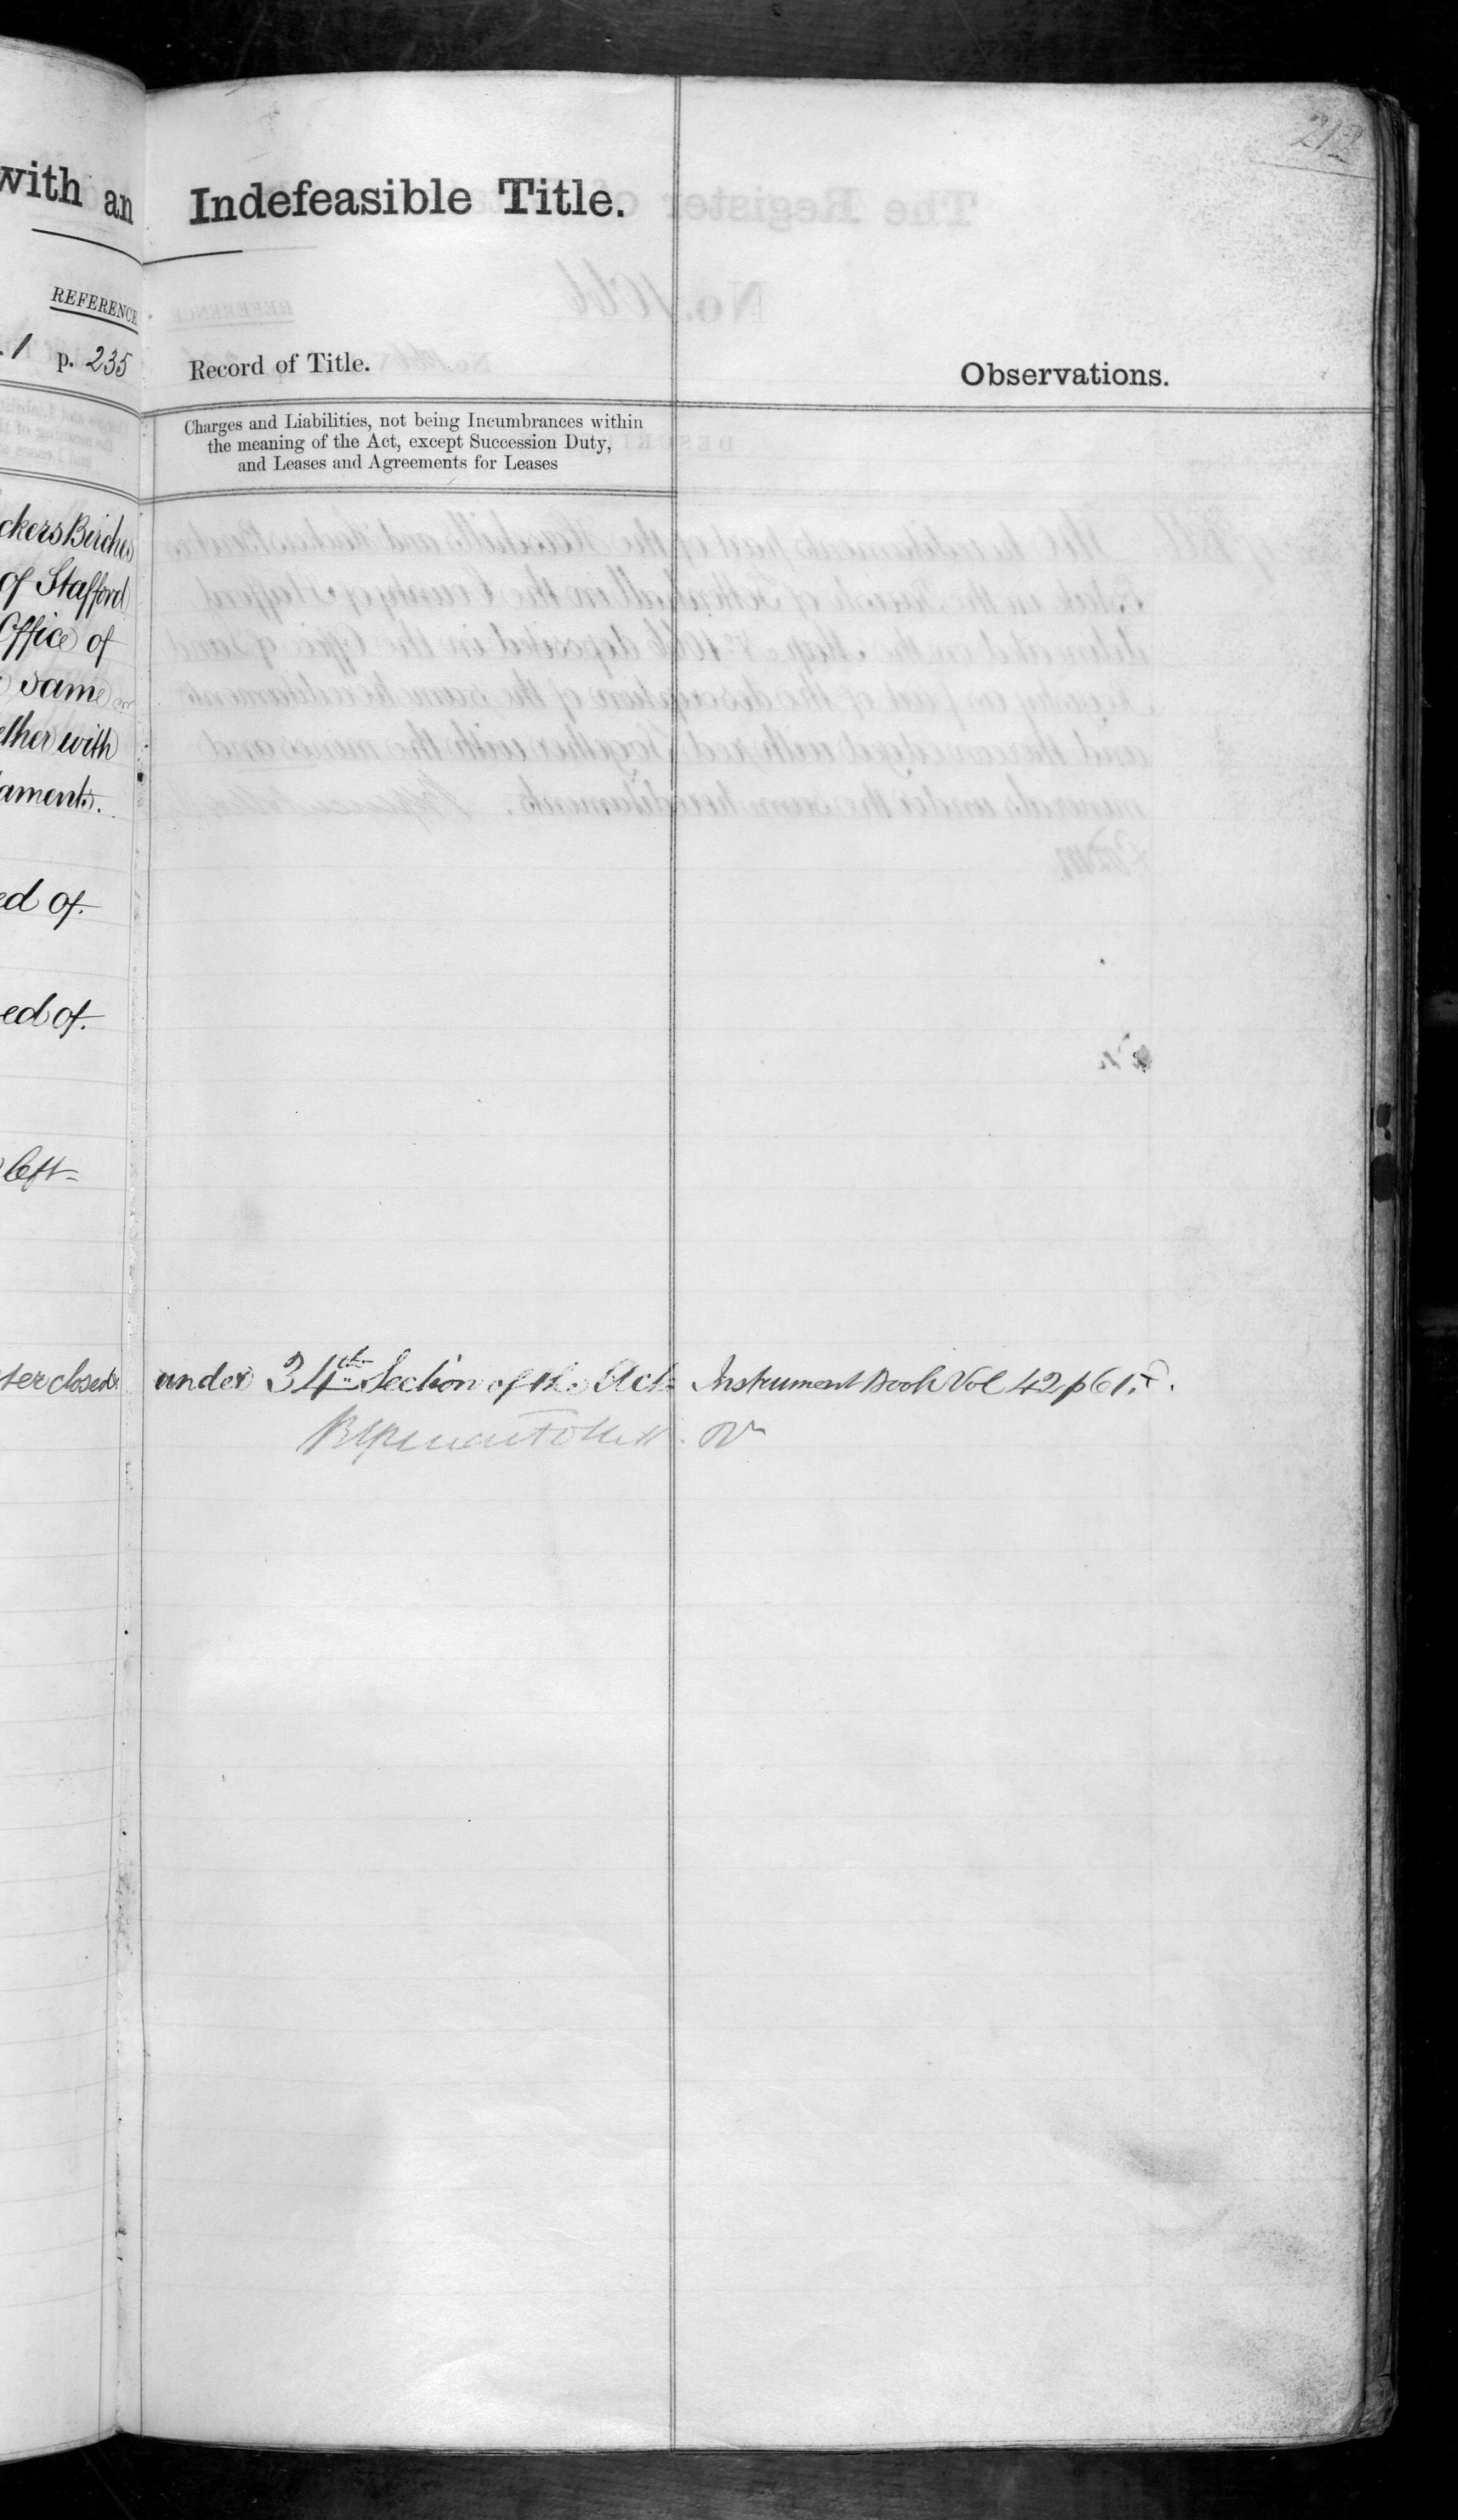 212
with an
REFERENCE
1 p. 235
ckers Birches
of Stafford
Office of
same
ether with
aments.
ed of
ed of
left
ter closed
Indefeasible Title.
Record of Title.
Observations.
Charges and Liabilities, not being Incumbrances within
the meaning of the Act, except Succession Duty,
and Leases and Agreements for Leases
under 34th Section of the Act Instrument Book Vol 42 p 61.